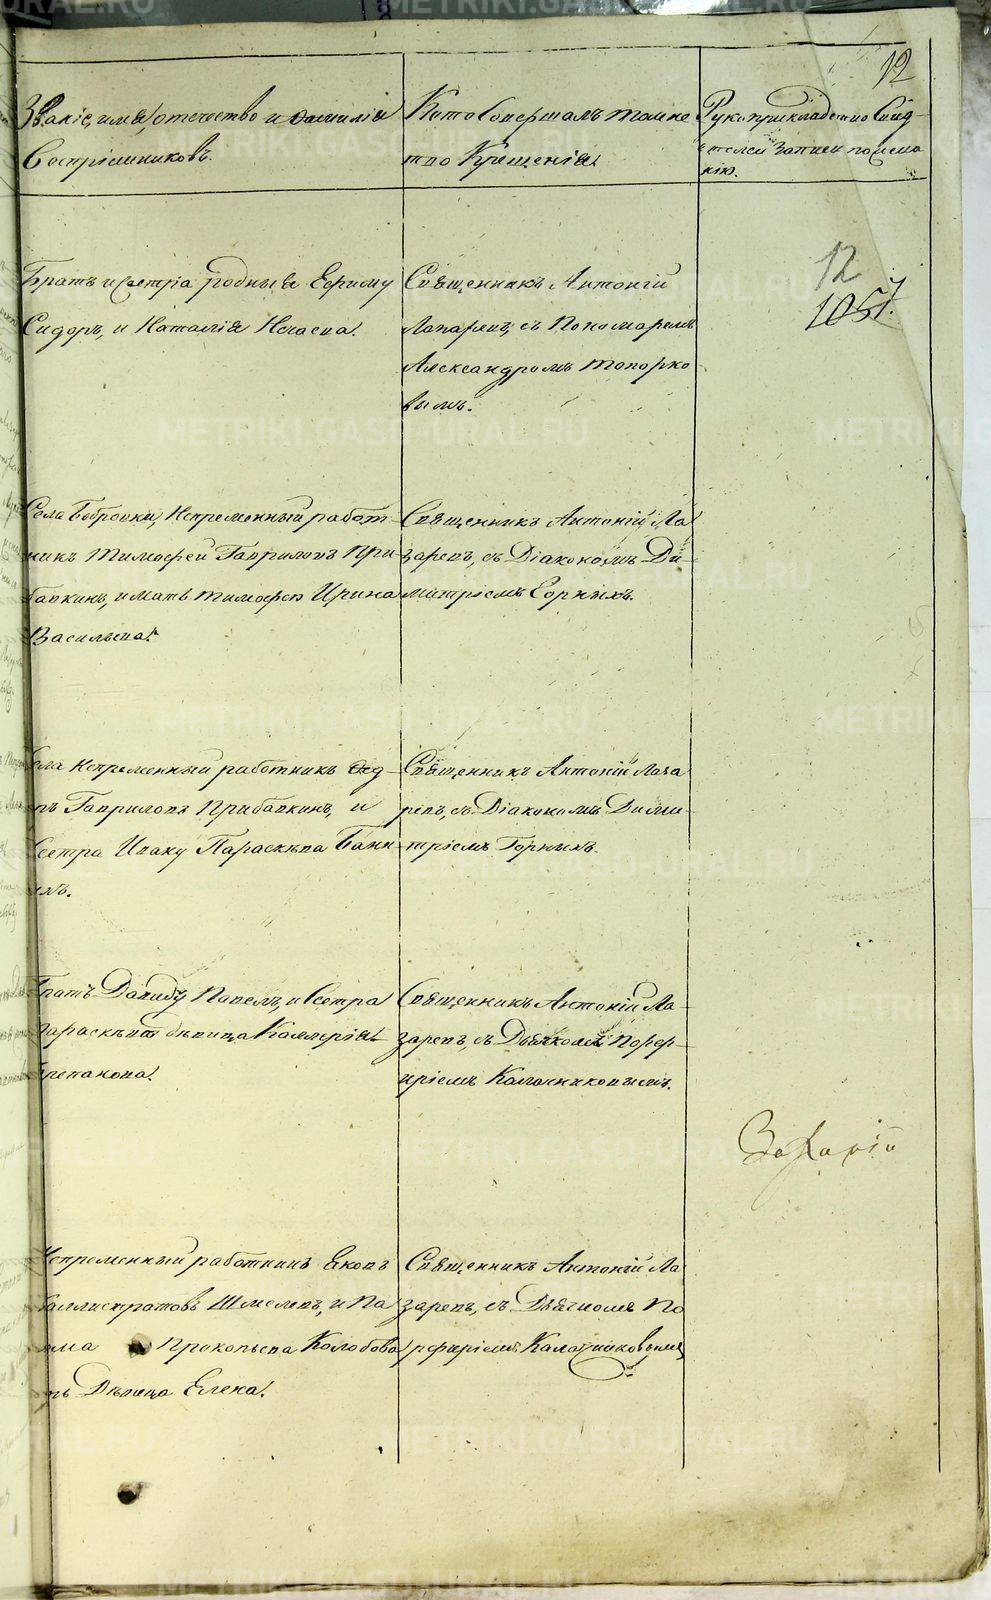 12
Званіе, имя, отечество и фамилія
Воспріемниковъ.
Кто Совершалъ таинс
тво Крещенія.
Рукоприкладство Свид
етелей записи по жела
нію.
12
1057.
Братъ и Сестра родныя Ефриму
Сидоръ, и Наталія Исаева.
Священникъ Антоній
Лазаревъ, съ Пономаремъ
Александромъ Топорко
вымъ.
Села Бобровки, Непременный работ-
никъ Тимофей Гавриловъ При-
бавкинъ, и мать Тимофея Ирина
Васильева.
Священникъ Антоній Ла
заревъ, съ Діакономъ Ди-
митріемъ Горныхъ.
села непременный работникъ Фед-
ъ Гавриловъ Прибавкинъ, и
Сестра Ивану Параскева Банн
ихъ.
Священникъ Антоній Лаза
ревъ, съ Діакономъ Дими-
тріемъ Горныхъ.
Братъ Давиду Павелъ, и Сестра
Параскевы девица Каллерія
Степанова.
Священникъ Антоній Ла-
заревъ, съ Дьякомъ Порф-
иріемъ Калашниковымъ.
Захарій
Непременный работникъ Яковъ
Каллистратовъ Шмелевъ, и Па
Прокопьева Колобова
Девица Елена.
Священникъ Антоній Ла
заревъ, съ Дьячкомъ По
рфиріемъ Калашниковымъ
METRIKI.GASO-URAL.RU